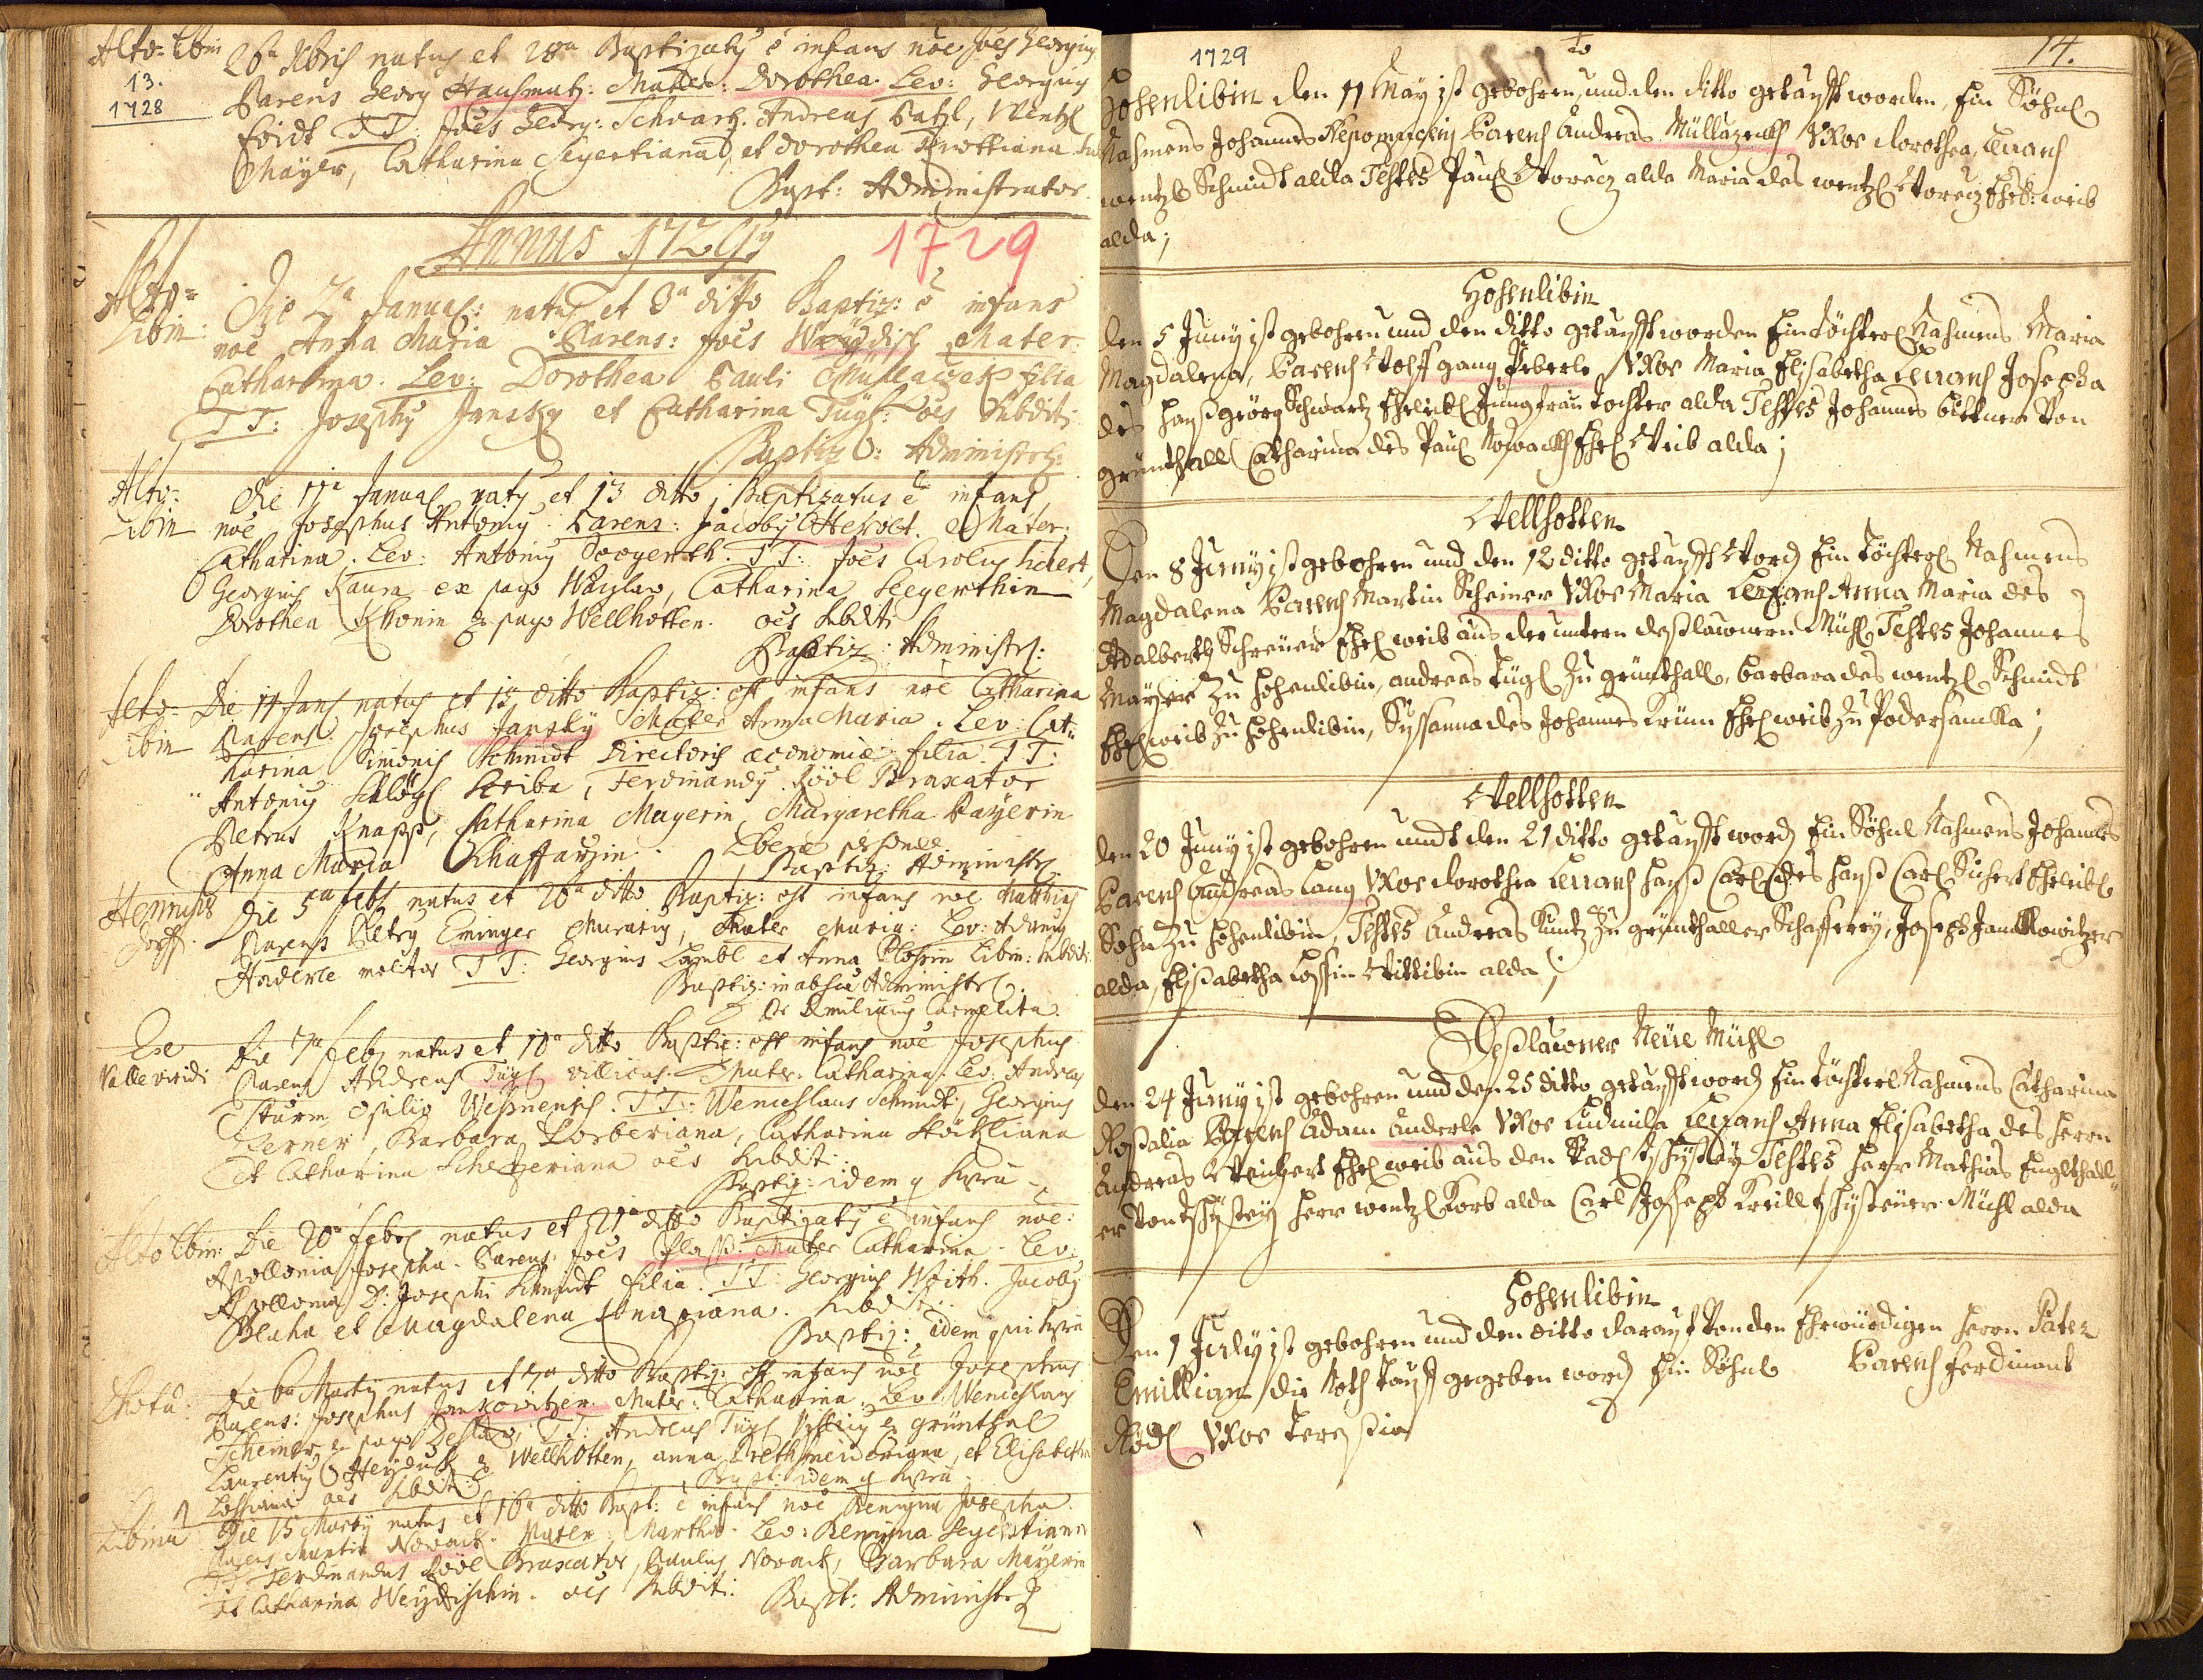 Alto-Libin 26a Xbris natus et 28va Baptizatus e infans noe Joes Georgius
13.
1728
Parens Georg Hausmutz: Mater: Dorothea. Lev: Georgius
Foidt TT: Joes Georg: Schvartz. Andreas Patzl, Wentzl
Mayer, Catharina Seyertiana, et Dorothea
Bapt: Administrator.
Annus 1729g 1729
Alto= Die 2a Januar: natus et 3a ditto Baptiz: e infans
Libin: noe Anna Maria Parens: Joes Weydisch Mater:
Catharina. Lev: Dorothea Pauli Mullaczek filia
TT: Josephus Jansky et Catharina Tügl: oes Subditi
Baptiz: Administr:
Alto- Die 11a Januar natus et 13 ditto Baptizatus e infans
Libin noe Josephus Antonius. Parens: Jacobus Herolt. Mater:
Catharina. Lev: Antonius TT: Joes Carolus Sichert,
Georgius Kaura ex pago Watzlaw, Catharina Seeyerthin
Dorothea ex pago Wellhotten. oes Subditi
Baptiz: Administr:
Alto- Die 14 Jan natus et 15 ditto Baptiz: est infans noe Catharina
Libin Parens Josephus Jansky Mater Anna Maria. Lev: Cat:
harina Simonis Schmidt Directoris œconomiæ filia. TT:
Antonius Schlögl Scriba, Ferdinandus Rödl Braxator
Petrus Knapp, Catharina Mayerin, Margaretha Payerin
Anna Maria Schaffarzin. Liberæ personæ.
Baptiz: Administr.
Henners Die 5ta febr natus et 20a ditto Baptiz: est infans noe Matthias
dorff. Parens Petrus Eminger Murarius, Mater Maria: Lev: Adamus
Anderle molitor TT: Georgius Lambl et Anna Plossin Libin: subditi
Baptiz: in absentia Administr.
Pr Emilianus Carmelita.
Ex Die 7a febr natus et 10a ditto Baptiz: est infans noe Josephus
Valle viridi Parens Andreas Tügl villicus. Mater. Catharina. Lev: Andreas
Sturm Opilio Wessnensis. TT: Wenceslaus Schmidt, Georgius
Perner, Barbara Lorberiana, Catharina Stöckliana
et Catharina Scheferiana oes Subditi.
Baptiz: idem q supra
Alto Libin: Die 20a febr natus et 21a ditto Baptizatus e infans noe:
Apollonia Josepha. Parens: Joes Ploss: Mater Catharina. Lev:
Apollonia D: Josephi Schmidt filia. TT: Georgius Woith. Jacobus
Blaha et Magdalena Subditi.
Baptiz: idem qui supra
Lhota: Die 6a Marty natus et 7a ditto Baptiz: est infans noe Josephus
Parens: Josephus Jankowitzer. Mater: Catharina. Lev: Wenceslaus
Scheiner ex pago Deslaw, TT: Andreas Tügl Villicus ex grünthal
Laurentius Heyduk ex Wellhotten, anna et Elisabetha
Lossiana oes Subditi
Bapt: idem q supra.
Libina Die 15 Marty natus et 16a ditto Bapt: e infans noe Benigna Josepha.
Parens Martin Novack. Mater: Martha. Lev: Benigna Seyertiana
TT Ferdinandus Rödl Braxator, Paulus Novack, Barbara Mayerin
et Catharina Weydischin. oes Subditi. Bapt: Administr
1729
14.
Hohenlibin den 11 May ist gebohren, und den ditto getaufft worden, Ein Söhnl
Nahmens Johannes Nepomucenus Parens Andreas Müllazeckh Vxor Dorothea, Levans
wentzl Schmidt alda Testes Paul Worecz alda Maria des wentzl Worecz Ehe: weib
alda;
Hohenlibin
Den 5 Juny ist gebohren und den ditto getaufft worden Ein töchterl Nahmens Maria
Magdalena, Parens Wolffgang Peberle Vxor Maria Elisabetha Levans Josepha
des Hanß georg Schwartz Eheleibl Jungfrau tochter alda Testes Johannes büttner von
grünthall Catharina des Paul Nowackh Ehel Weib alda;
Wellhotten
Den 8 Juny ist gebohren und den 12 ditto getaufft Word Ein töchterl Nahmens
Magdalena Parens Martin Scheiner Vxor Maria Levans Anna Maria des
Adalberth Schreiner Ehel weib aus der untern deßlawnern Mühl, Testes Johannes
Mayer zu Hohenlibin, andreas tügl zu grünthall, barbara des wentzl Schmidt
Ehel weib zu Hohenlibin, Sussanna des Johannes Ehel weib zu Podersamkka;
Wellhotten
Den 20 Juny ist gebohren undt den 21 ditto getaufft word Ein Söhnl Nahmens Johannes
Parens Andreas Lang Vxor Dorothea Levans Hanß Carl des Hanß Carl Sichert Eheleibl
Sohn zu Hohenlibin, Testes Andreas Kuntz zu grünthaller Schafferey, Joseph Jankkowitzer
alda, Elisabetha Lossin Wittibin alda;
Deßlawner Neüe Mühl
Den 24 Juny ist gebohren und den 25 ditto getaufft word Ein töchterl Nahmens Catharina
Rosalia Parens Adam Anderle Vxor Ludmila Levans Anna Elisabetha des Herrn
Andreas Weickert Ehel weib aus den Stadl tschistey Testes Herr Mathias Englthall-
er von tschistey Herr wentzl Korb alda Carl Joseph Mühl alda
Hohenlibin
Den 1 July ist gebohren und den ditto darauf von den Ehrwürdigen Herrn Pater
Emillian die Noth tauff gegeben word Ein Söhnl Parens Ferdinant
Rödl Vxor Teresia